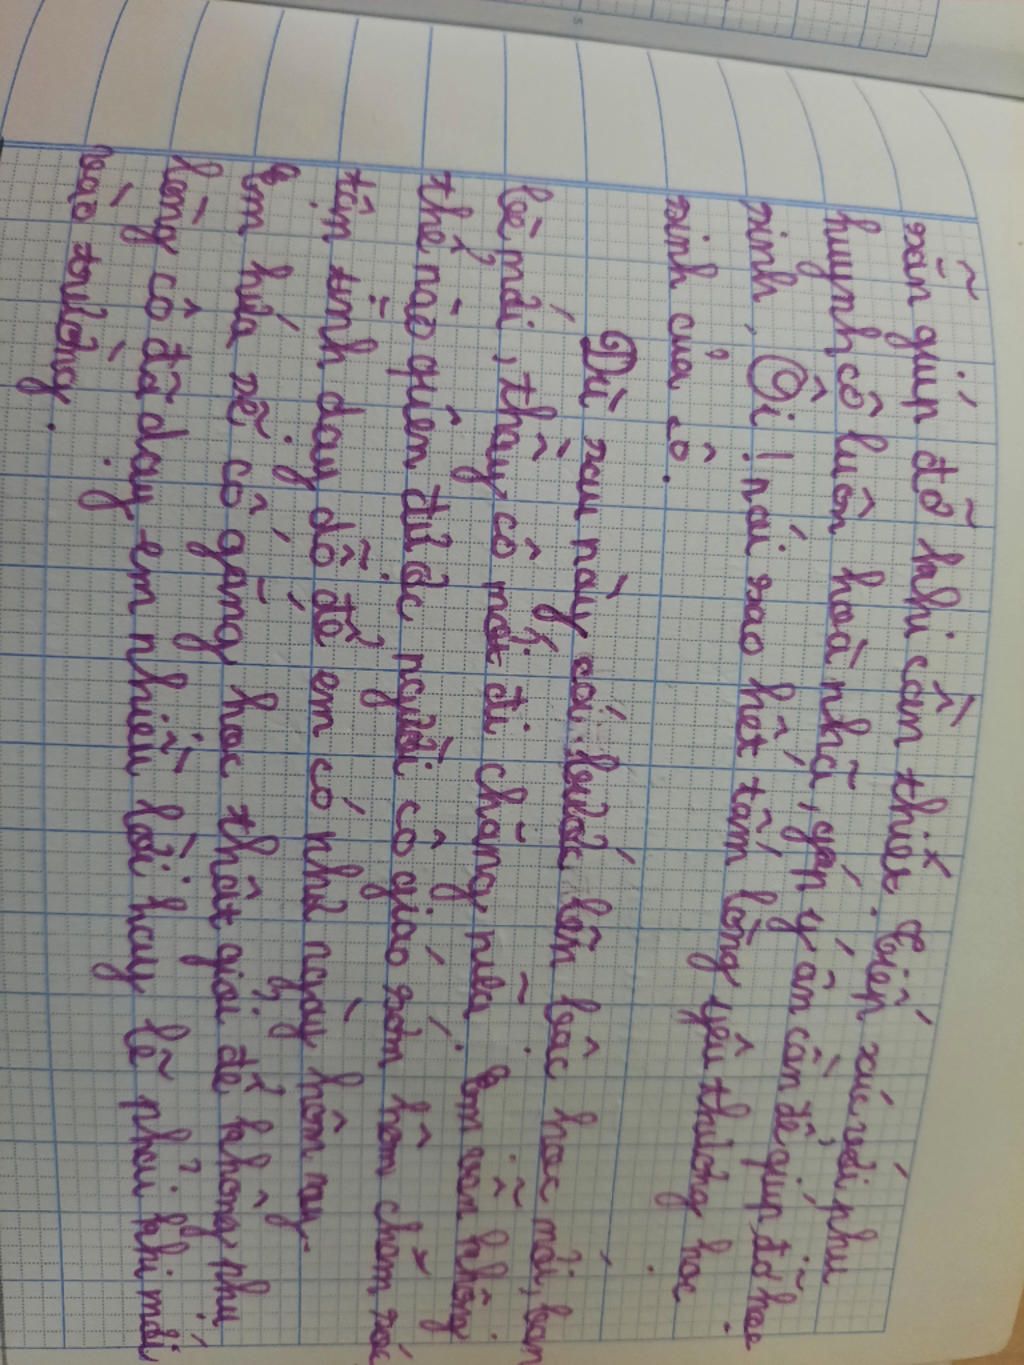 sẵn giúp đỡ khi cần thiết. Tiếp xúc với phụ
huynh cô luôn hoà nhã, gần ý ân cần để giúp đỡ học
sinh. Ôi! nói sao hết tấm lòng yêu thương học
sinh của cô.
Dù sau này có bước lên bậc học mới, bạn
bè mới, thầy cô mới đi chăng nữa. Em vẫn không
thể nào quên được người cô giáo sớm hôm chăm sóc
tận tình dạy dỗ để em có như ngày hôm nay.
Em hứa sẽ cố gắng học thật giỏi để không phụ
lòng cô đã dạy em nhiều lời hay lẽ phải khi mới
vào trường.